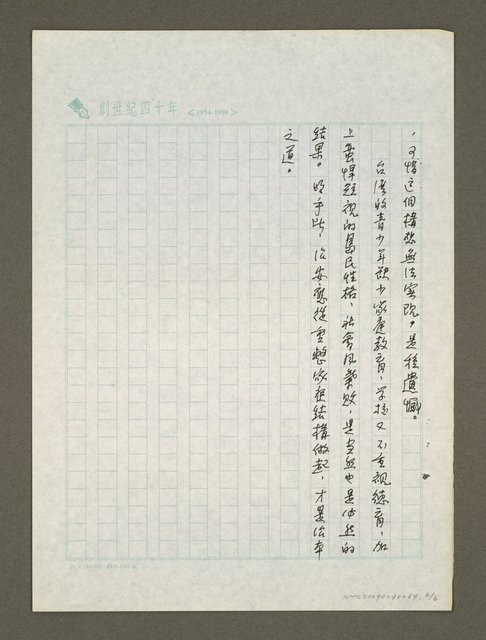 創世紀四十年 <1954-1994>
,可惜這個構想無法實現,是種遺憾。
台灣的青少年缺少家庭教育,學校又不重視德育,加
上蠻悍短視的島民性格,社會風氣敗,是當然也是必然的
結果。明乎此,治安應從重整家庭結構做起,才是治本
之道。
NMTL20090240284. 6/6